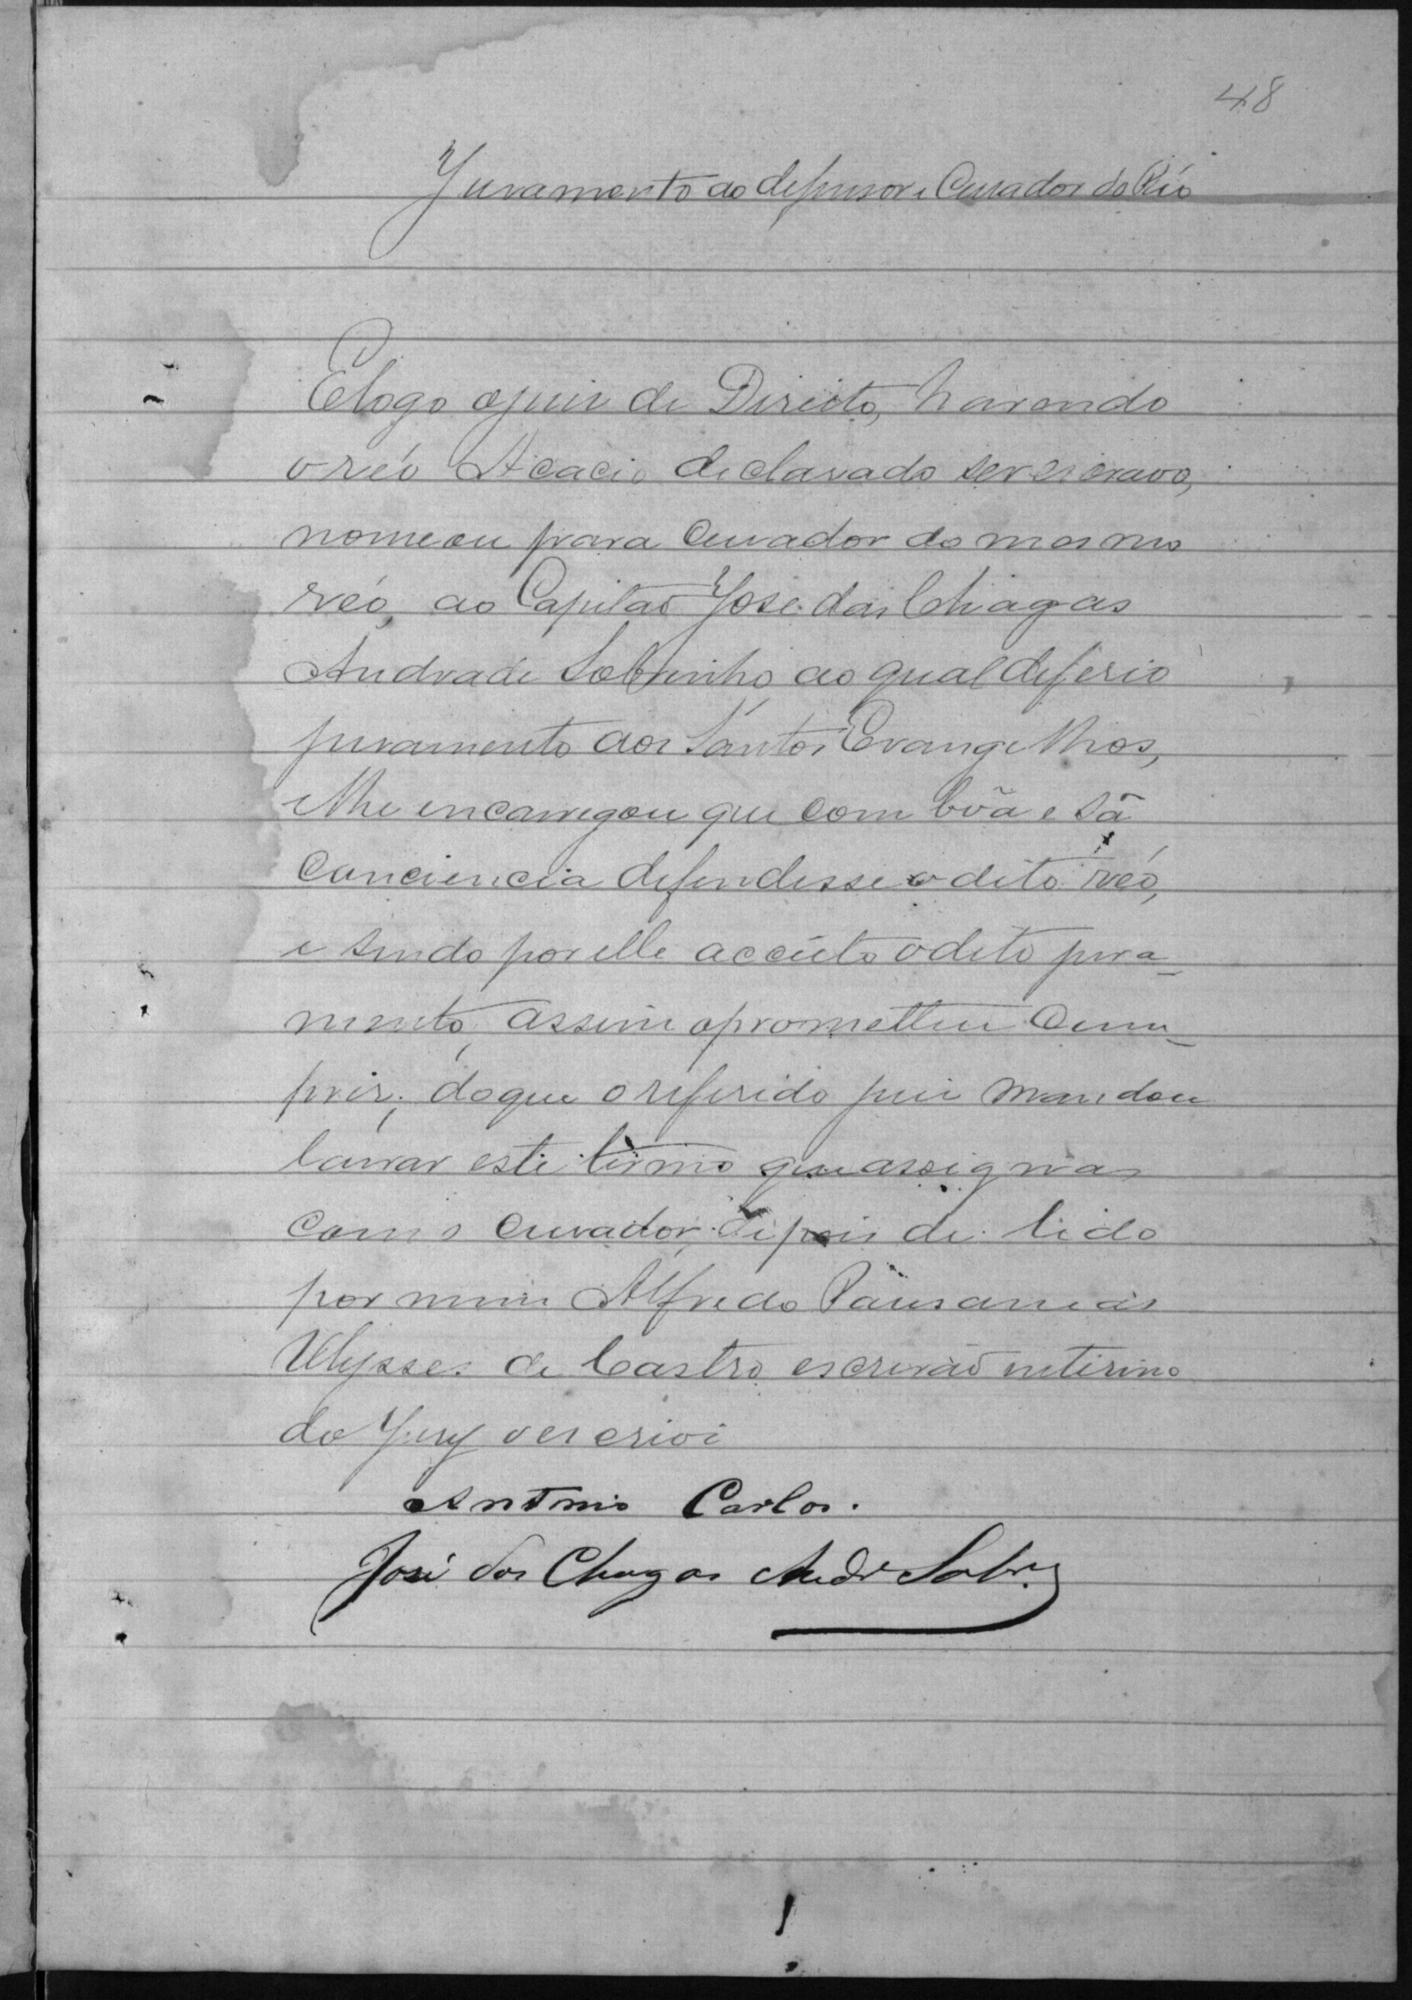 48
Juramento ao defensor e Curador do Réo
E logo o juiz de Direito, havendo
o réo Acacio declarado ser escravo,
nomeou para Curador do mesmo
réo, ao Capitão José das Chagas
Andrade Sobrinho, ao qual deferio
juramento aos Santos Evangelhos,
e lhe encarregou que com bôa e sã
conciencia defendesse o dito réo,
e sendo por elle acceito o dito jura-
mento, assim o prometteu cum-
prir; do que o referido juiz mandou
lavrar este termo que assigna
com o curador, depois de lido
por mim Alfredo Pausanias
Ulysses de Castro escrivão interino
do Jury o escrivi
Antonio Carlos.
José das Chagas Andr.e Sobr.